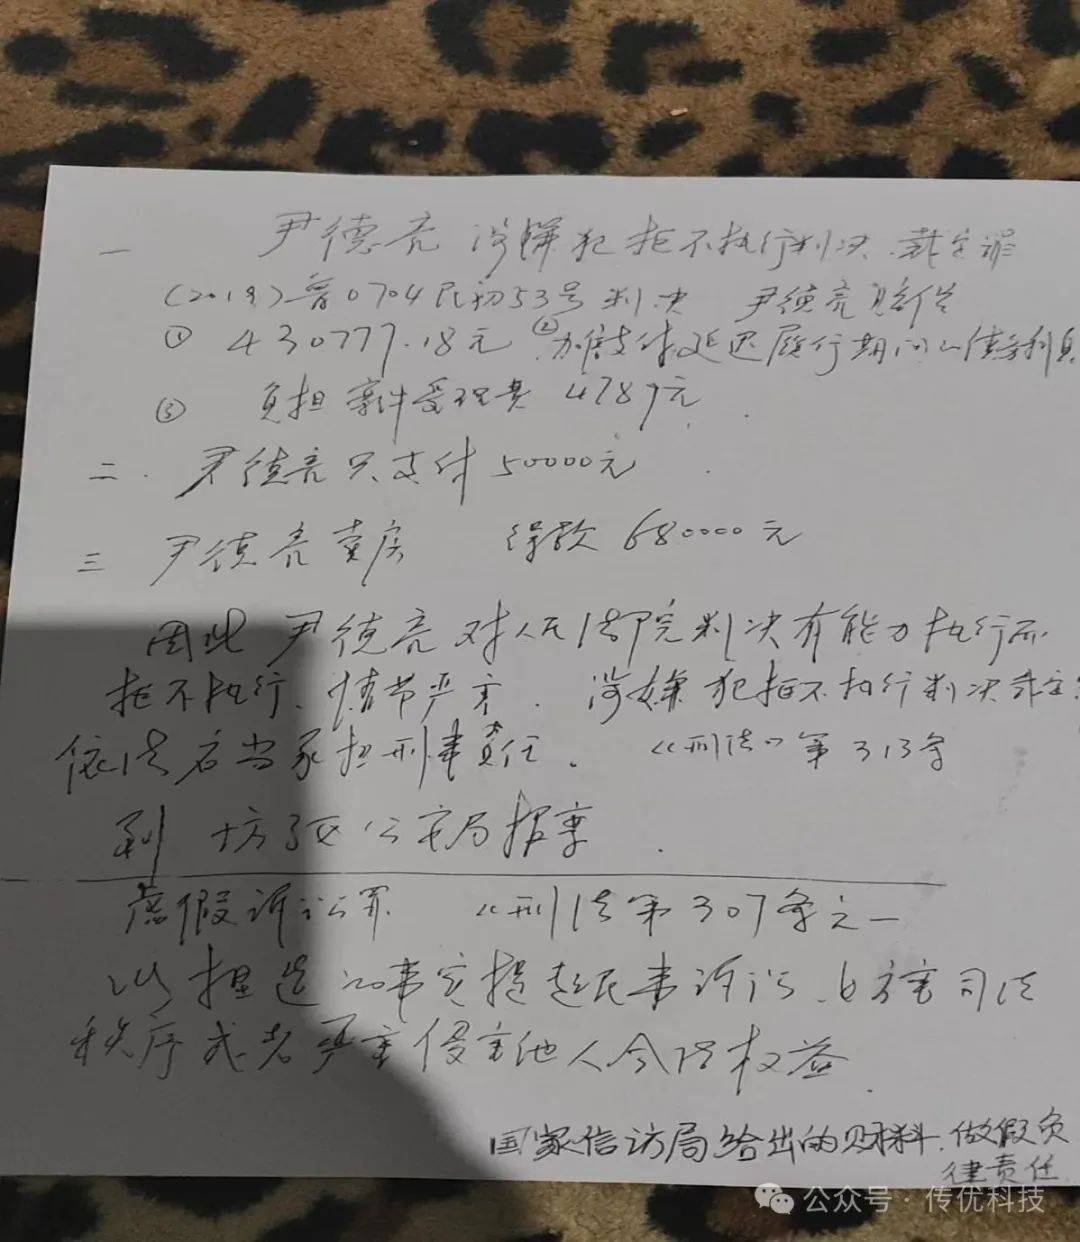 一 尹德亮涉嫌犯拒不执行判决、裁定罪
(2019)鲁0704民初53号判决 尹德亮赔偿
① 430777.18元 ②加倍支付延迟履行期间的债务利息
③ 负担案件受理费 4789元.
二. 尹德亮只支付50000元.
三 尹德亮卖房 得款680000元
因此尹德亮对人民法院判决有能力执行而
拒不执行、情节严重. 涉嫌犯拒不执行判决裁定
依法应当承担刑事责任. 《刑法》第313条
到坊子区公安局报案.
虚假诉讼罪 《刑法第307条之一
以捏造的事实提起民事诉讼、妨害司法
秩序或者严重侵害他人合法权益.
国家信访局给出的材料.做假负
律责任.
公众号·传优科技